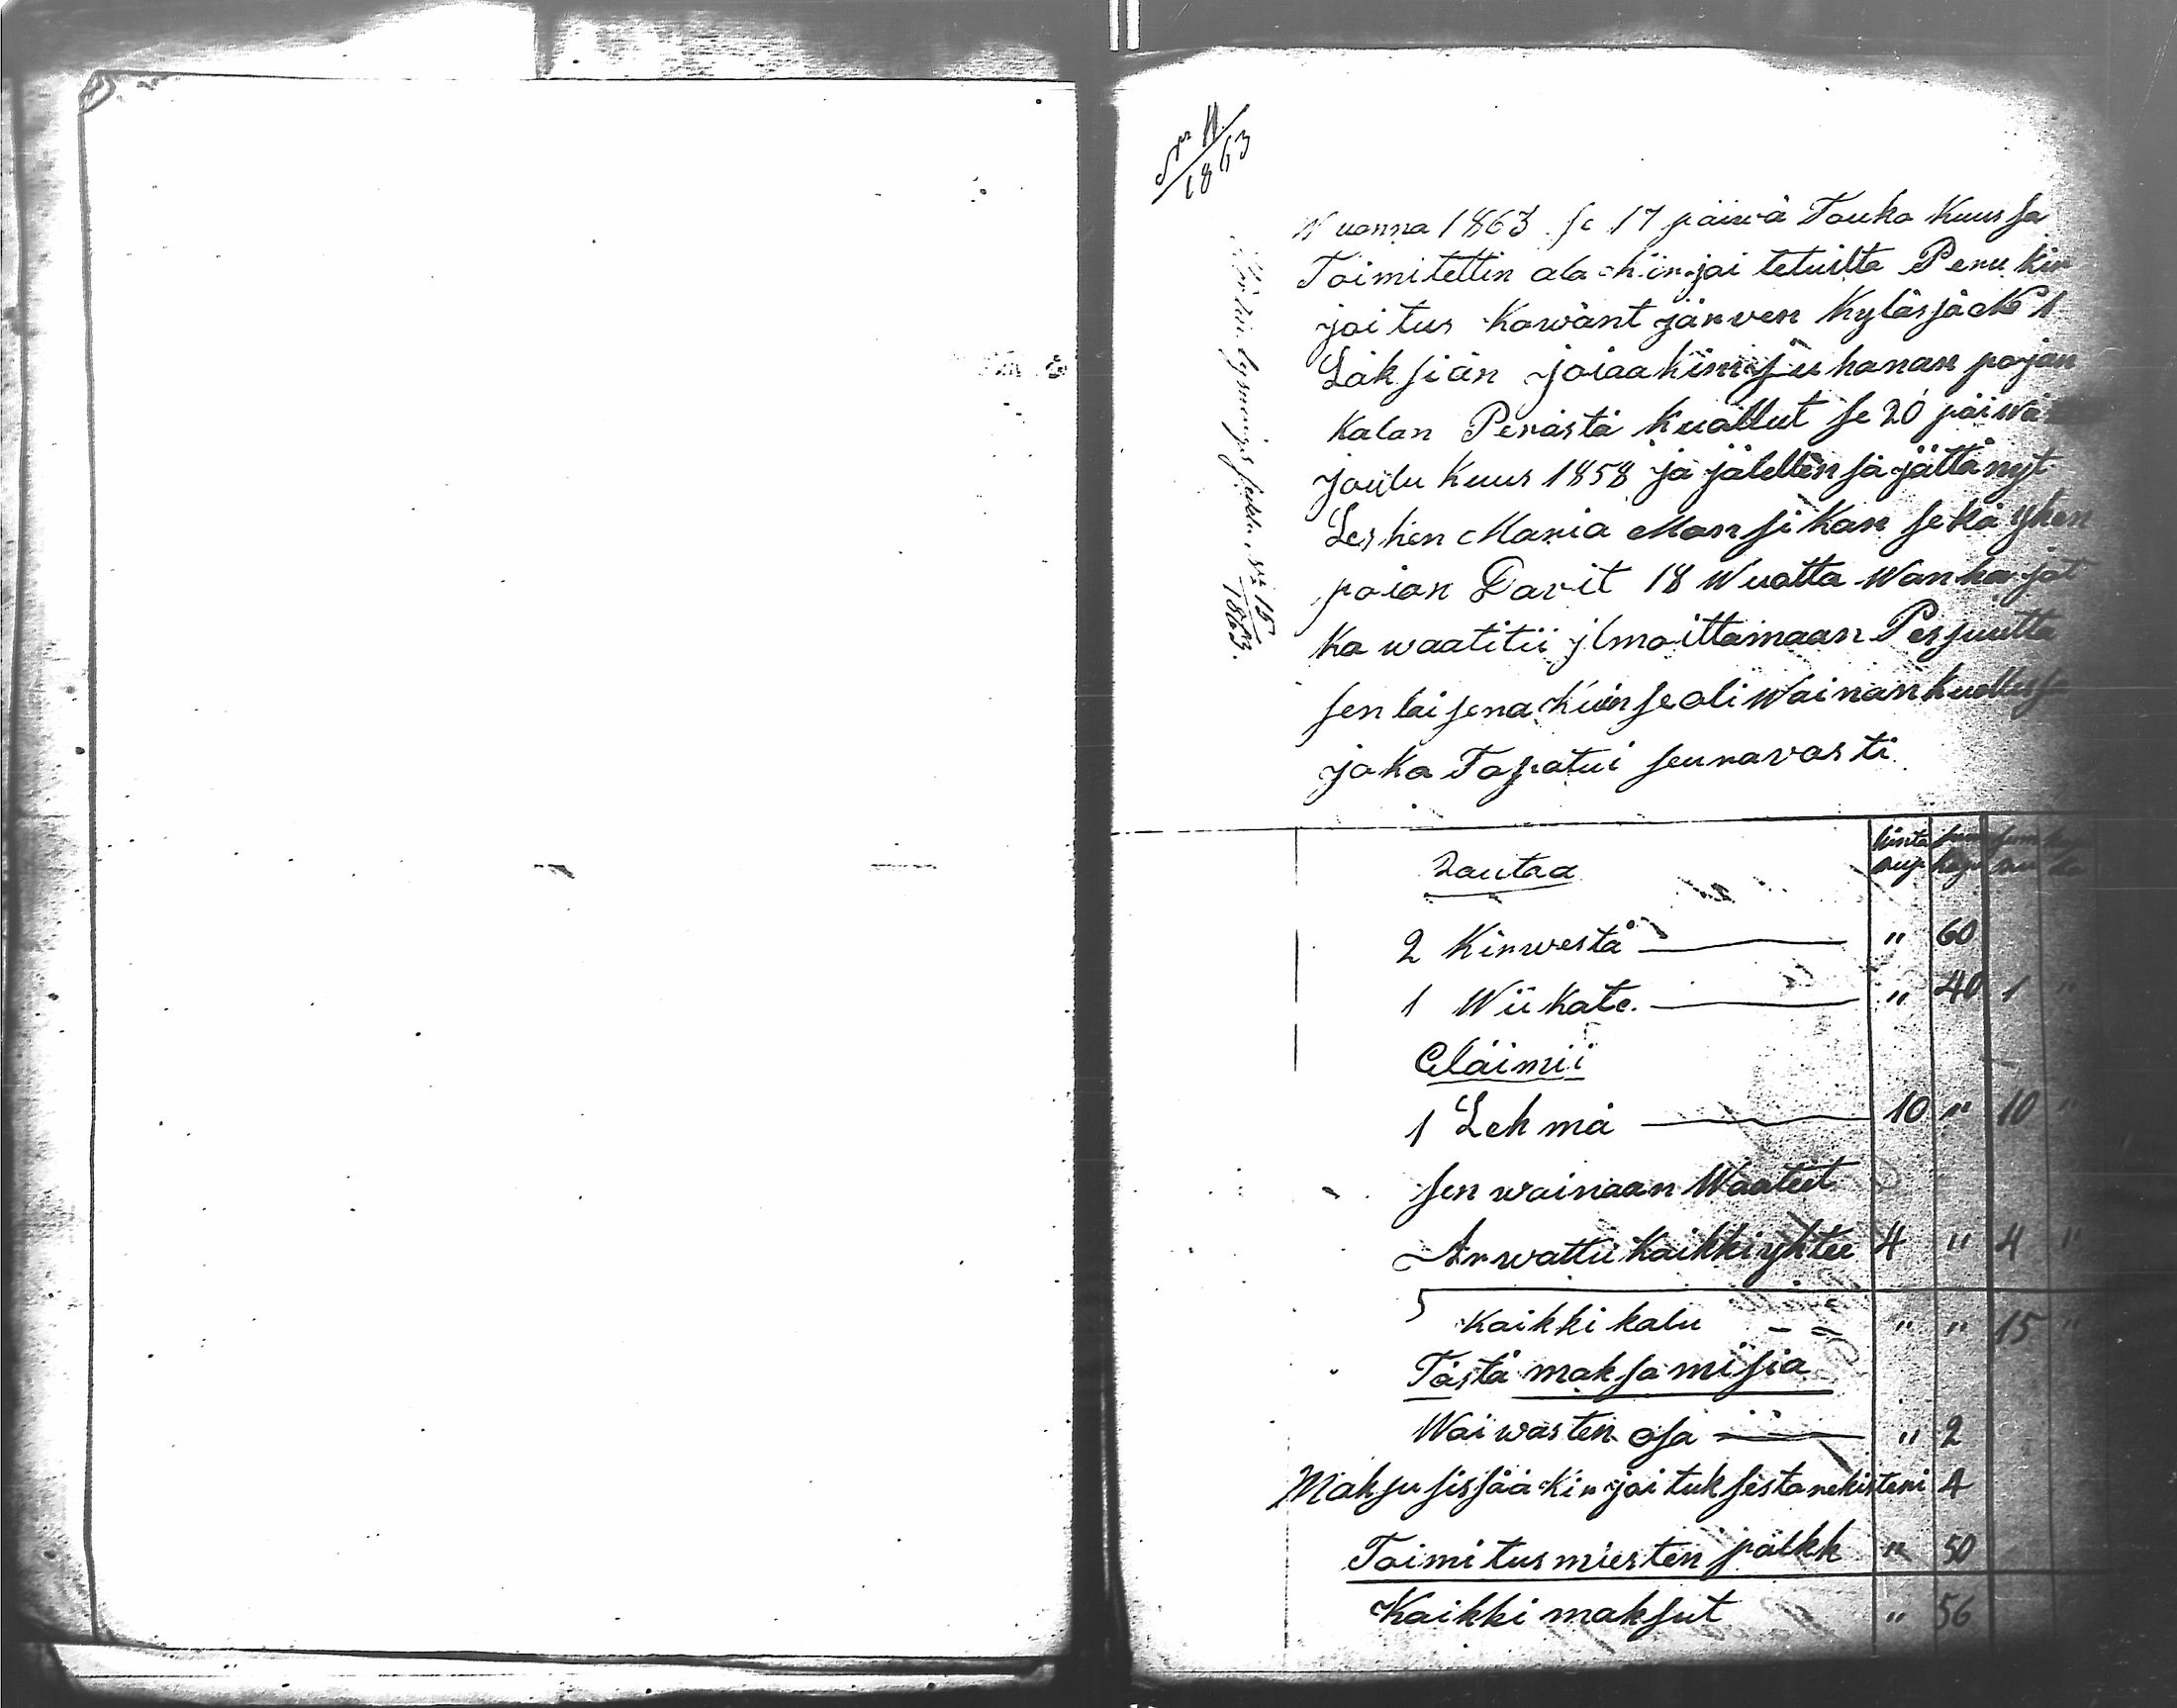 Nr 11
1863
Wuonna 1863 se 17 päiwä Touko kuussa
Toimitettin ala-kirjoi tetuilta Peru kir
joitus Kawant järwen Kyläsjä No 1
Läksiän joiaakim Juhanan pojan
Kalan Perästä kuollut se 20 päiwä
joulu kuus 1858 ja jälellensä jättänyt
Lesken Maria Mansikan sekä yhen
poian Davit 18 Wuotta Wanha jot
ka waatitii jlmoittamaan Pesjuutta
sen laisena kuin se oli Wainan kuollessa
joka Tapatui seuravasti
No 15
1863.
Rautaa
kinta
rup
2 Kirwestä " 60
1 Wiikate. " 40 1 "
Eläimii
1 Lehmä 10 " 10 "
sen wainaan Waateet
Arwattu kaikki yhtee 4 " 4 "
Kaikki kalu " " 15 "
Tästä maksamisia
Waiwasten osa " 2
Maksu sissää kirjoituksesta rekisteri 4
Toimitusmiesten palkk " 50
Kaikki maksut " 56